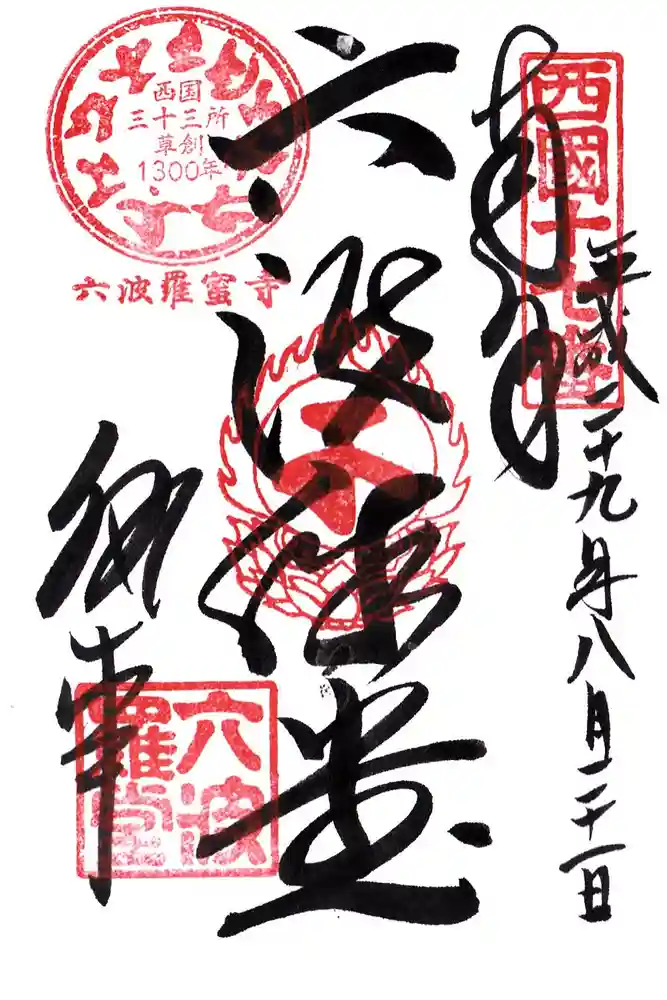 奉拝
西國十七番
平成二十九年八月二十一日
六波羅堂
西国
三十三所
草創
1300年
六波羅蜜寺
六波
羅堂